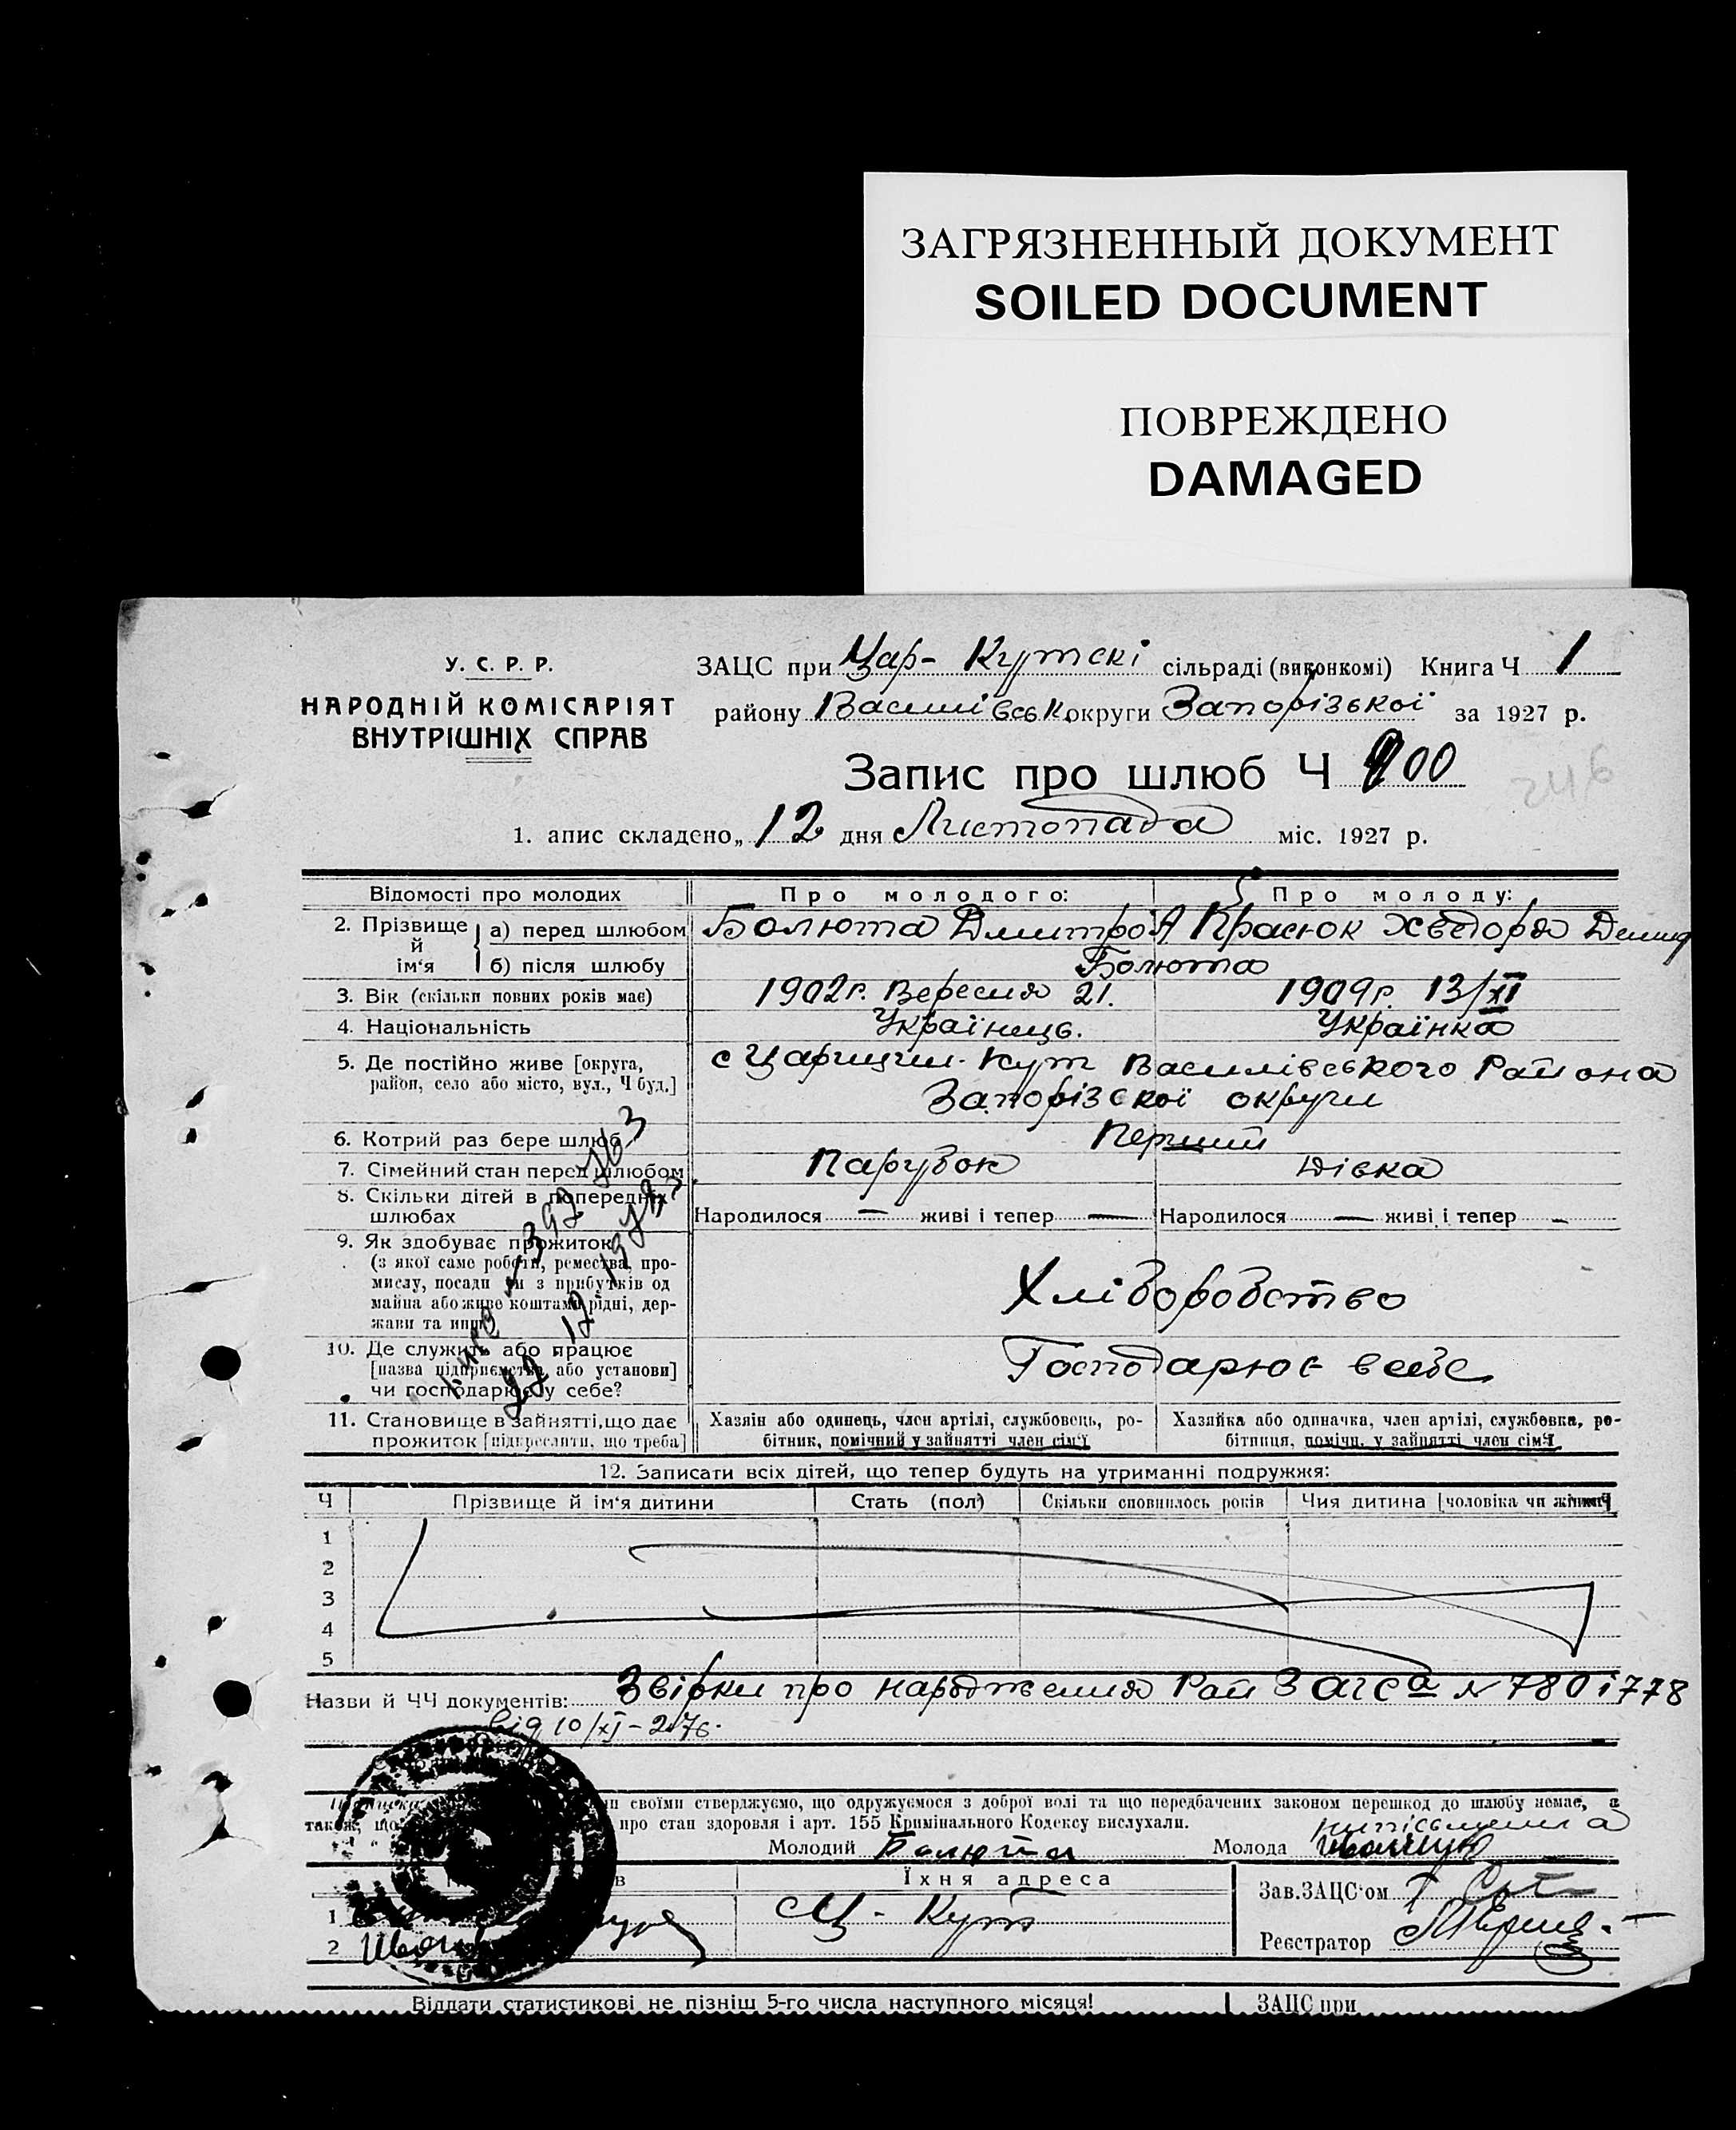 ЗАГРЯЗНЕННЫЙ ДОКУМЕНТ
SOILED DOCUMENT
ПОВРЕЖДЕНО
DAMAGED
У. С. Р. Р.
НАРОДНІЙ КОМІСАРІЯТ
ВНУТРІШНІХ СПРАВ
ЗАЦС при Цар-Кутскі сільраді (виконкомі) Книга Ч 1
району Василівськ округи Запорізької за 1927 р.
Запис про шлюб Ч 200
246
1. апис складено „12 дня Листопада міс. 1927 р.
Відомості про молодих Про молодого: Про молоду:
2. Прізвище й ім‘я а) перед шлюбом Болюта Дмитро А Красюк Хведора Демид
б) після шлюбу Болюта
3. Вік (скільки повних років має) 1902 г. Вересня 21. 1909 р. 13/XI
4. Національність Українець. Українка
5. Де постійно живе [округа, с Царицин-Кут Василівського Района
район, село або місто, вул., Ч буд.] Запорізської округи
6. Котрий раз бере шлюб Перший
7. Сімейний стан перед шлюбом Парубок Дівка
8. Скільки дітей в попередніх
шлюбах Народилося — живі і тепер — Народилося — живі і тепер —
9. Як здобуває прожиток
(з якої саме роботи, ремества, про-
мислу, посади чи з прибутків од
майна або живе коштами рідні, дер-
жави та инш.
Хліборобство
10. Де служить або працює
[назва підприємства або установи]
чи господарює у себе?
Господарює в себе
11. Становище в зайнятті, що дає Хазяін або одинець, член артілі, службовець, ро- Хазяйка або одиначка, член артілі, службовка, ро-
прожиток [підкреслити, що треба] бітник, помічний у зайнятті член сім‘ї бітниця, помічн. у зайнятті член сім‘ї
12. Записати всіх дітей, що тепер будуть на утриманні подружжя:
Ч Прізвище й ім‘я дитини Стать (пол) Скільки сповнилось років Чия дитина [чоловіка чи жінки]
1
2
3
4
5
Назви й ЧЧ документів: Звірки про народження Рай Загса N 780 i 778
від 10/XI-27 г.
ми своїми стверджуємо, що одружуємося з доброї волі та що передбачених законом перешкод до шлюбу немає, а
також, що про стан здоровля і арт. 155 Кримінального Кодексу вислухали.
Молодий Болюта Молода
Їхня адреса
1 Ц-Кут
2
Зав. ЗАЦС‘ом
Реєстратор
Віддати статистикові не пізніш 5-го числа наступного місяця!
ЗАЦС при